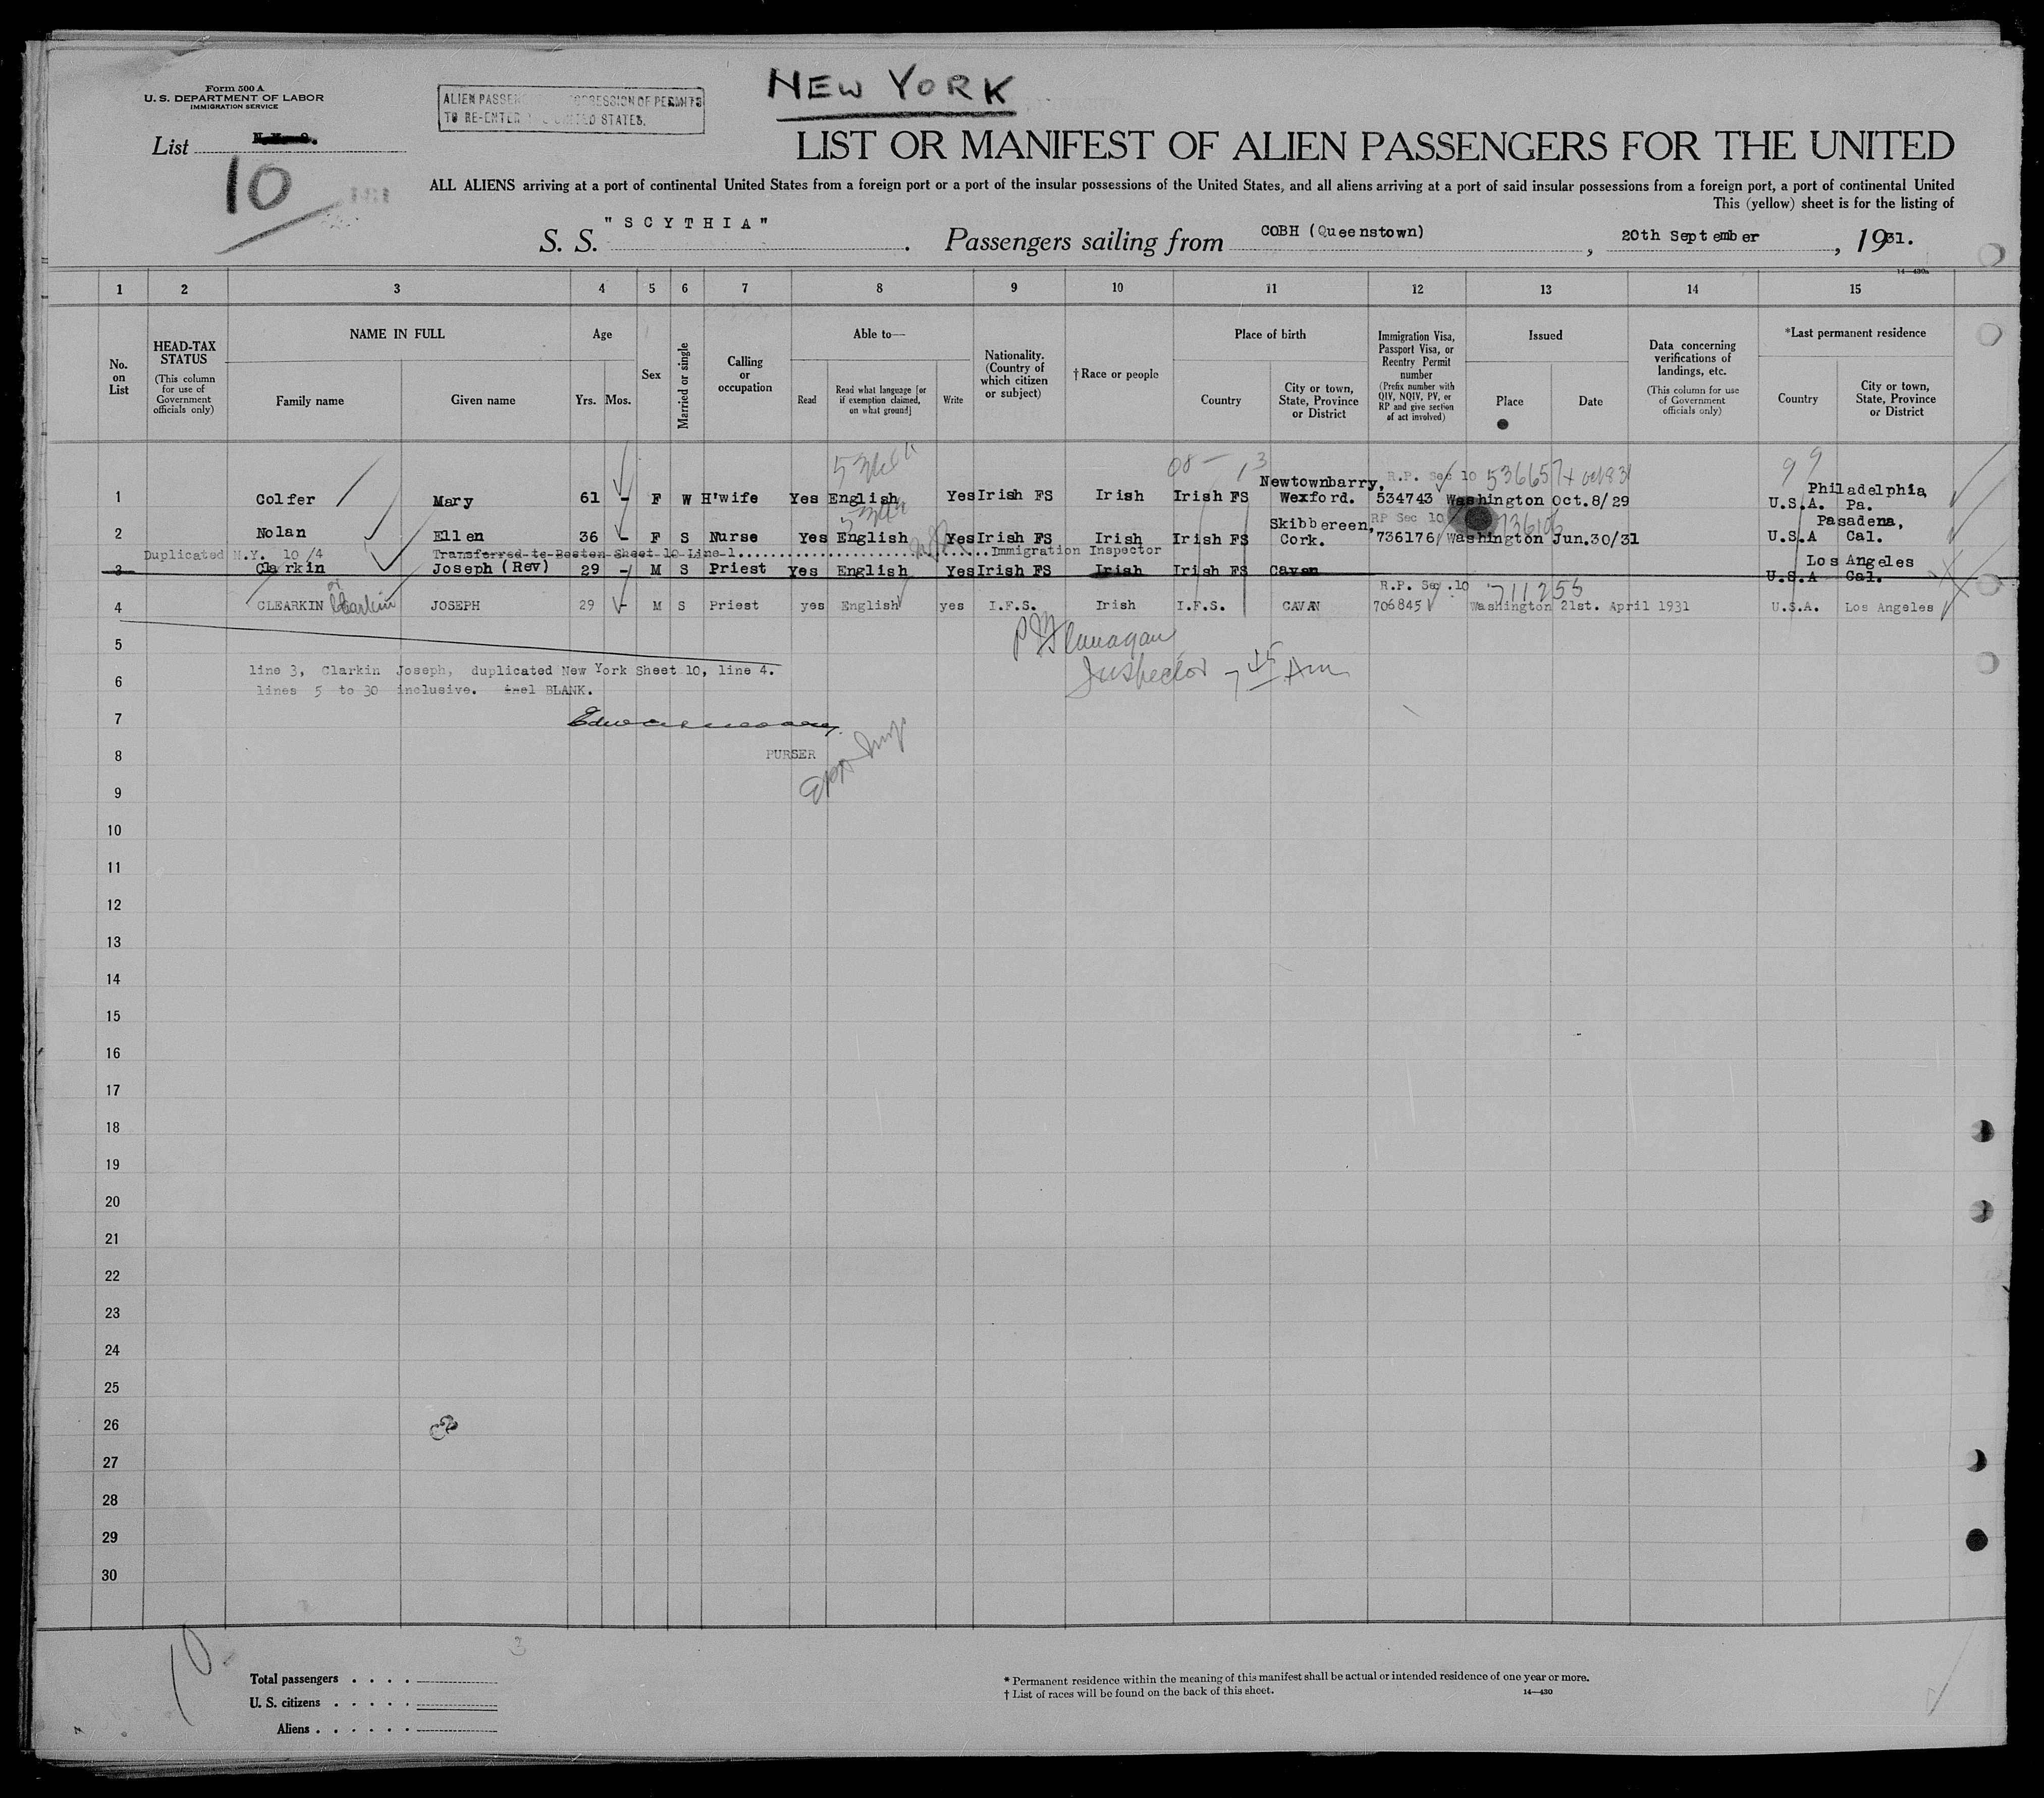 NEW YORK
Form 500 A
U. S. DEPARTMENT OF LABOR
IMMIGRATION SERVICE
List
10
ALIEN PASSEN ESSION OF PERMITS
TO RE-ENTER UNITED STATES.
LIST OR MANIFEST OF ALIEN PASSENGERS FOR THE UNITED
ALL ALIENS arriving at a port of continental United States from a foreign port or a port of the insular possessions of the United States, and all aliens arriving at a port of said insular possessions from a foreign port, a port of continental United
This (yellow) sheet is for the listing of
S. S. "SCYTHIA". Passengers sailing from COBH (Queenstown), 20th September, 1931.
14—430a
1 2 3 4 5 6 7 8 9 10 11 12 13 14 15
No. on List
HEAD-TAX STATUS
(This column for use of Government officials only)
NAME IN FULL
Family name
Given name
Age
Yrs. Mos.
Sex
Married or single
Calling or occupation
Able to—
Read
Read what language [or if exemption claimed, on what ground]
Write
Nationality. (Country of which citizen or subject)
†Race or people
Place of birth
Country
City or town, State, Province or District
Immigration Visa, Passport Visa, or Reentry Permit number
(Prefix number with QIV, NQIV, PV, or RP and give section of act involved)
Issued
Place
Date
Data concerning verifications of landings, etc.
(This column for use of Government officials only)
*Last permanent residence
Country
City or town, State, Province or District
08 - 13 99
Newtownbarry, R.P. Sec 10 536657 Philadelphia
1 Colfer Mary 61 - F W H'wife Yes English Yes Irish FS Irish Irish FS Wexford. 534743 Washington Oct.8/29 U.S.A. Pa.
Skibbereen, RP Sec 10 Pasadena,
2 Nolan Ellen 36 - F S Nurse Yes English Yes Irish FS Irish Irish FS Cork. 736176 Washington Jun.30/31 U.S.A Cal.
Duplicated N.Y. 10/4 Transferred to Boston Sheet 10 Line 1 Immigration Inspector
Los Angeles
3 Clarkin Joseph (Rev) 29 - M S Priest Yes English Yes Irish FS Irish Irish FS Cavan U.S.A Cal.
R.P. Sec.10 711255
4 CLEARKIN or Clarkin JOSEPH 29 - M S Priest yes English yes I.F.S. Irish I.F.S. CAVAN 706845 Washington 21st. April 1931 U.S.A. Los Angeles
5
P Flanagan
Inspector 7 45 Am
line 3, Clarkin Joseph, duplicated New York Sheet 10, line 4.
6
lines 5 to 30 inclusive. BLANK.
7
8 PURSER
9
10
11
12
13
14
15
16
17
18
19
20
21
22
23
24
25
26
27
28
29
30
10
3
Total passengers
U. S. citizens
Aliens
* Permanent residence within the meaning of this manifest shall be actual or intended residence of one year or more.
† List of races will be found on the back of this sheet.
14—430